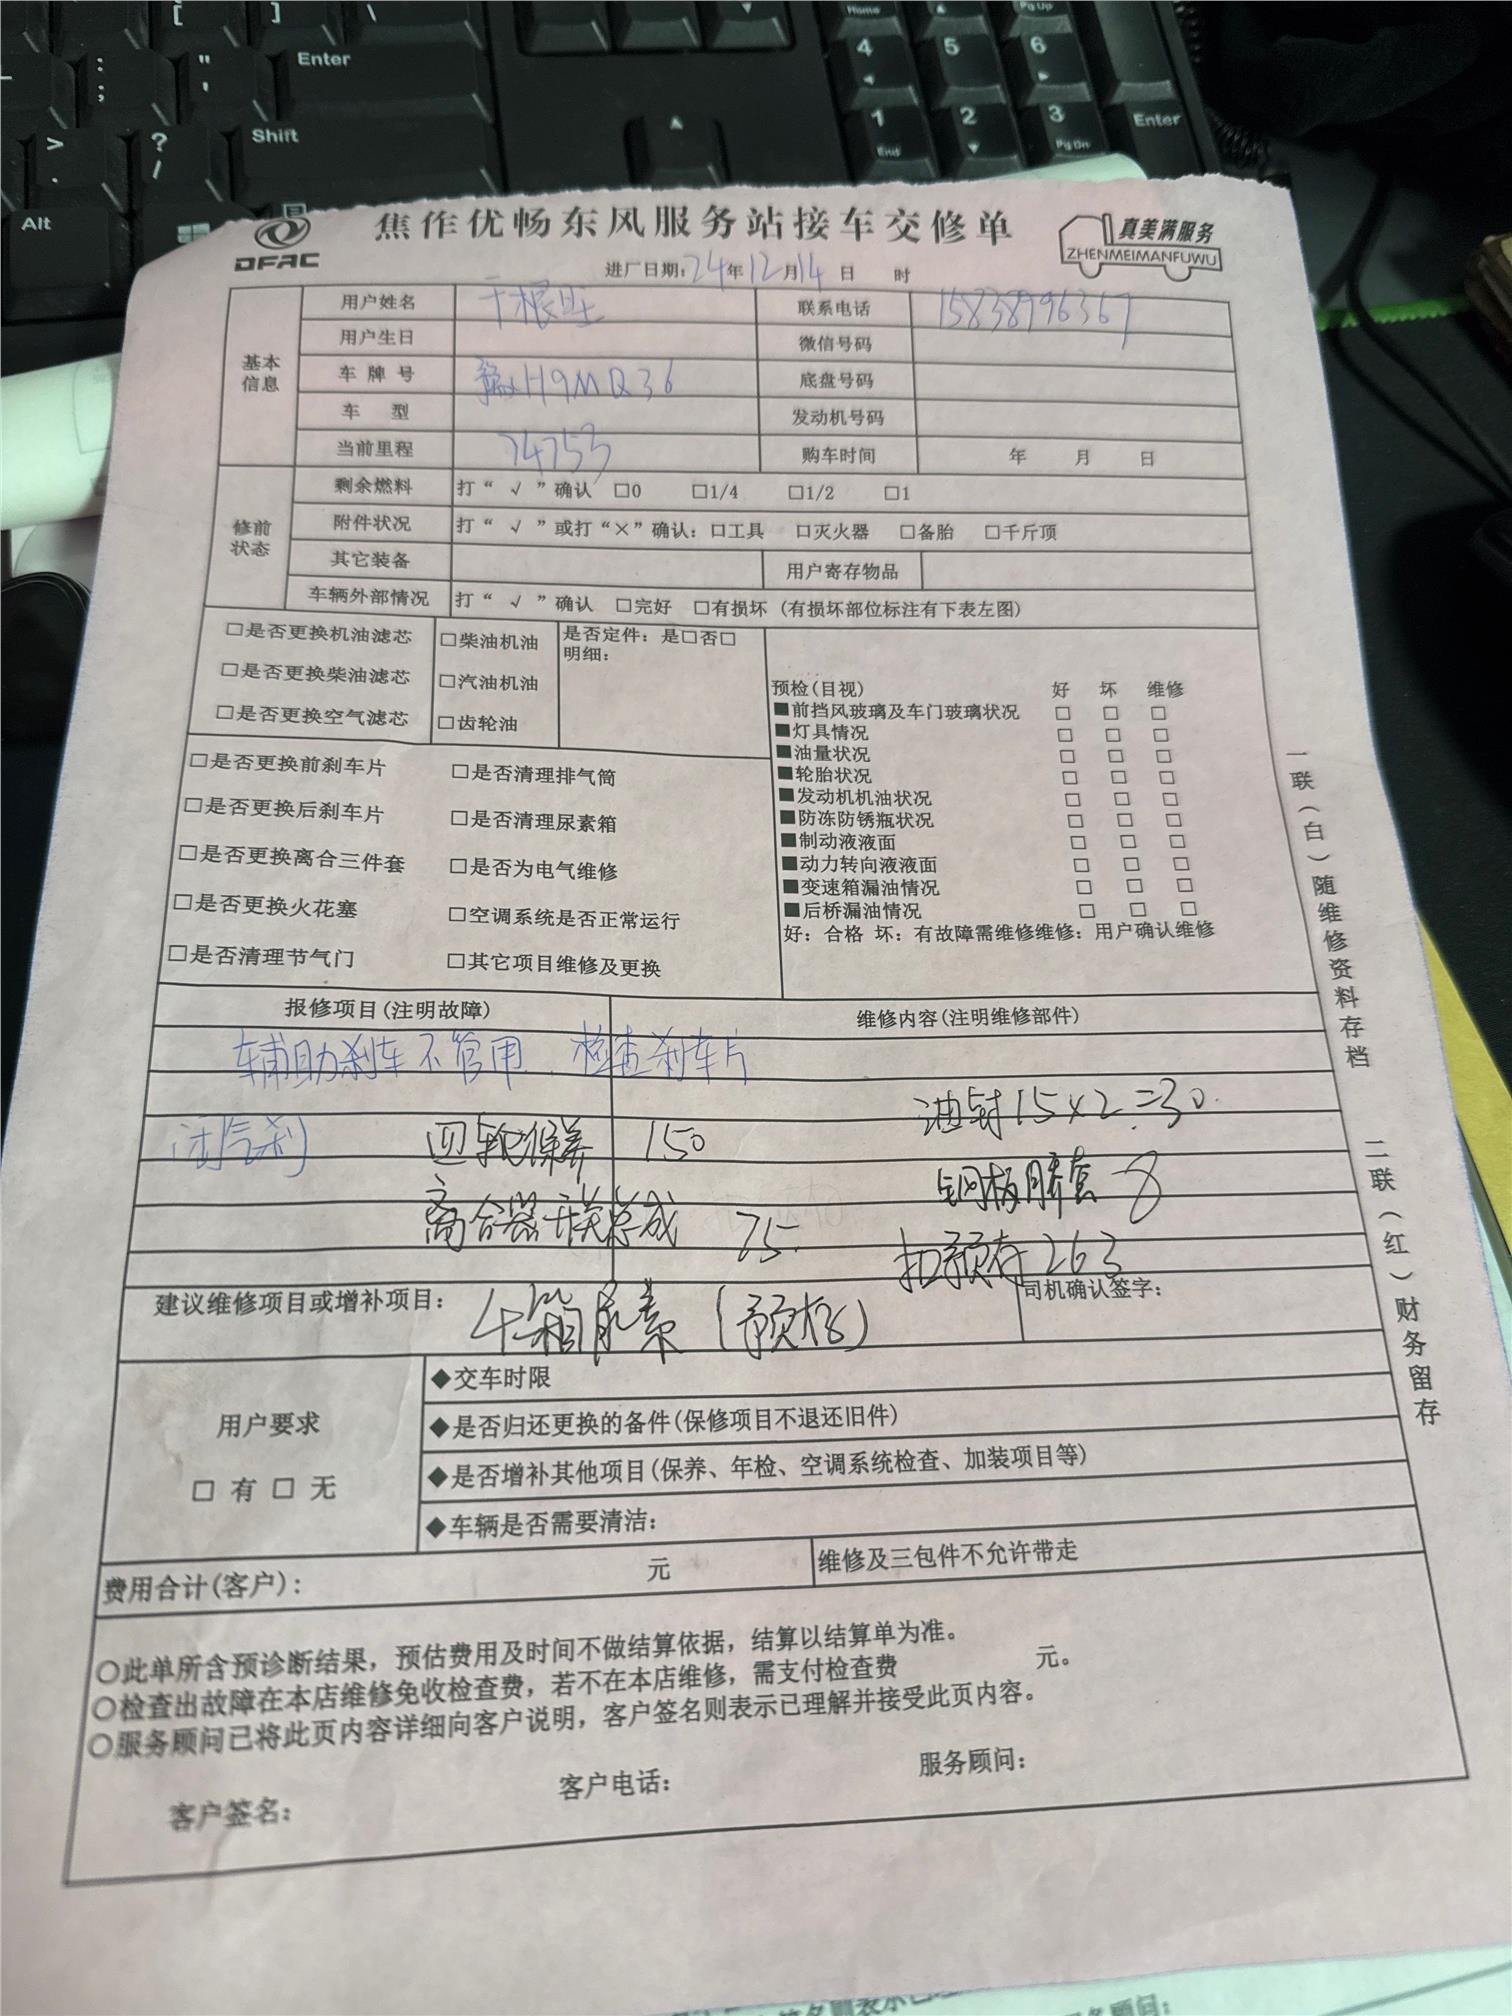 Enter
Shift
Alt
Home
Pg Up
4
5
6
1
End
2
3
Pg Dn
Enter
DFAC
焦作优畅东风服务站接车交修单
真美满服务
ZHENMEIMANFUWU
进厂日期:24年12月14日 时
基本信息
用户姓名
联系电话 15838996367
用户生日
微信号码
车牌号 豫H9MQ36
底盘号码
车型
发动机号码
当前里程 74753
购车时间 年 月 日
修前状态
剩余燃料 打“√”确认 □0 □1/4 □1/2 □1
附件状况 打“√”或打“×”确认:□工具 □灭火器 □备胎 □千斤顶
其它装备
用户寄存物品
车辆外部情况 打“√”确认 □完好 □有损坏 (有损坏部位标注有下表左图)
□是否更换机油滤芯 □柴油机油
□是否更换柴油滤芯 □汽油机油
□是否更换空气滤芯 □齿轮油
是否定件: 是□否□
明细:
□是否更换前刹车片 □是否清理排气筒
□是否更换后刹车片 □是否清理尿素箱
□是否更换离合三件套 □是否为电气维修
□是否更换火花塞 □空调系统是否正常运行
□是否清理节气门 □其它项目维修及更换
预检(目视) 好 坏 维修
■前挡风玻璃及车门玻璃状况 □ □ □
■灯具情况 □ □ □
■油量状况 □ □ □
■轮胎状况 □ □ □
■发动机机油状况 □ □ □
■防冻防锈瓶状况 □ □ □
■制动液液面 □ □ □
■动力转向液液面 □ □ □
■变速箱漏油情况 □ □ □
■后桥漏油情况 □ □ □
好: 合格 坏: 有故障需维修维修: 用户确认维修
报修项目(注明故障) 维修内容(注明维修部件)
辅助刹车不管用、检查刹车片
油封15×2=30.
气刹 四轮保养 150
钢板胶套 8
离合器开关总成 75.
扣预存263
建议维修项目或增补项目: 十箱尿素(预存)
司机确认签字:
用户要求
□ 有 □ 无
◆交车时限
◆是否归还更换的备件(保修项目不退还旧件)
◆是否增补其他项目(保养、年检、空调系统检查、加装项目等)
◆车辆是否需要清洁:
费用合计(客户): 元
维修及三包件不允许带走
○此单所含预诊断结果, 预估费用及时间不做结算依据, 结算以结算单为准。
○检查出故障在本店维修免收检查费, 若不在本店维修, 需支付检查费 元。
○服务顾问已将此页内容详细向客户说明, 客户签名则表示已理解并接受此页内容。
客户签名: 客户电话: 服务顾问:
一联(白)随维修资料存档
二联(红)财务留存